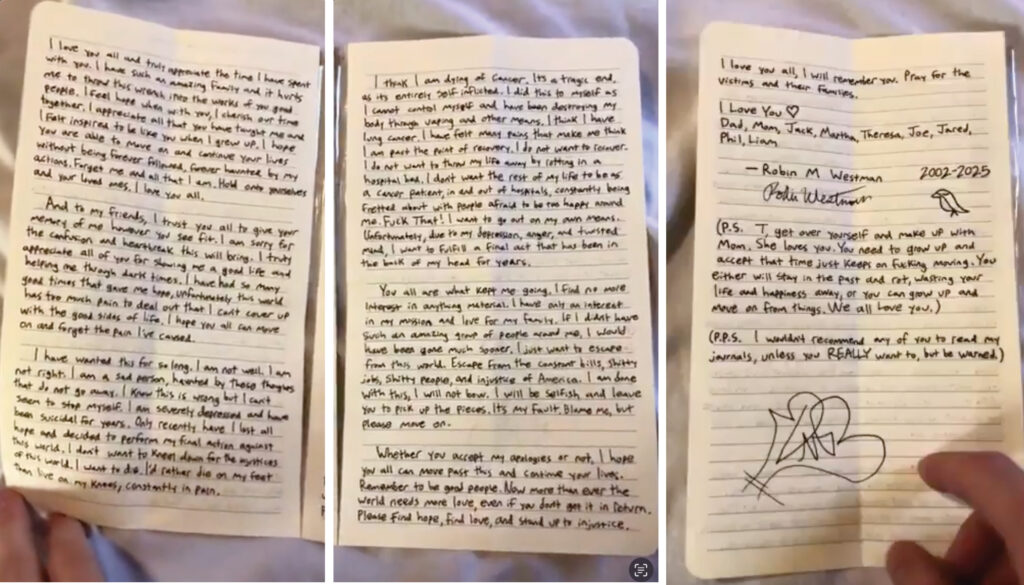 I love you all and truly appreciate the time I have spent
with you. I have such an amazing family and it hurts
me to throw this wrench into the works of you good
people. I feel hope when with you, I cherish our time
together. I appreciate all that you have taught me and
I felt inspired to be like you when I grew up. I hope
you are able to move on and continue your lives
without being forever followed, forever haunted by my
actions. Forget me and all that I am. Hold onto yourselves
and your loved ones. I love you all.
And to my friends, I trust you all to give your
memory of me however you see fit. I am sorry for
the confusion and heartbreak this will bring. I truly
appreciate all of you for showing me a good life and
helping me through dark times. I have had so many
good times that gave me hope, unfortunately this world
has too much pain to deal out that I can't cover up
with the good sides of life. I hope you all can move
on and forget the pain I've caused.
I have wanted this for so long. I am not well. I am
not right. I am a sad person, haunted by these thoughts
that do not go away. I know this is wrong but I can't
seem to stop myself. I am severely depressed and have
been suicidal for years. Only recently have I lost all
hope and decided to perform my final action against
this world. I don't want to kneel down for the
of this world. I want to die. I'd rather die on my feet
than live on my knees, constantly in pain.
I think I am dying of cancer. Its a tragic end,
as its entirely self inflicted. I did this to myself as
I cannot contol myself and have been destroying my
body through vaping and other means. I think I have
lung cancer. I have felt many pains that make me think
I am past the point of recovery. I do not want to recover.
I do not want to throw my life away by rotting in a
hospital bed. I dont want the rest of my life to be as
a cancer patient, in and out of hospitals, constantly being
fretted about with people afraid to be too happy around
me. Fuck That! I want to go out on my own means.
Unfortunately, due to my depression, anger, and twisted
mind, I want to fulfill a final act that has been in
the back of my head for years.
You all are what kept me going. I find no more
interest in anything material. I have only an interest
in my mission and love for my family. If I didnt have
such an amazing group of people around me, I would
have been gone much sooner. I just want to escape
from this world. Escape from the constant bills, shitty
jobs, shitty people, and injustice of America. I am done
with this, I will not bow. I will be selfish and leave
you to pick up the pieces. Its my fault. Blame me, but
please move on.
Whether you accept my apologies or not, I hope
you all can move past this and continue your lives.
Remember to be good people. Now more than ever the
world needs more love, even if you dont get it in return.
Please find hope, find love, and stand up to injustice.
I love you all, I will remember you. Pray for the
victims and their families.
I Love You ♡
Dad, Mom, Jack, Martha, Theresa, Joe, Jared,
Phil, Liam
— Robin M Westman 2002-2025
Robin Westman
(P.S. T get over yourself and make up with
Mom. She loves you. You need to grow up and
accept that time just keeps on fucking moving. You
either will stay in the past and rot, wasting your
life and happiness away, or you can grow up and
move on from things. We all love you.)
(P.P.S. I wouldn't recommend any of you to read my
journals, unless you REALLY want to, but be warned.)